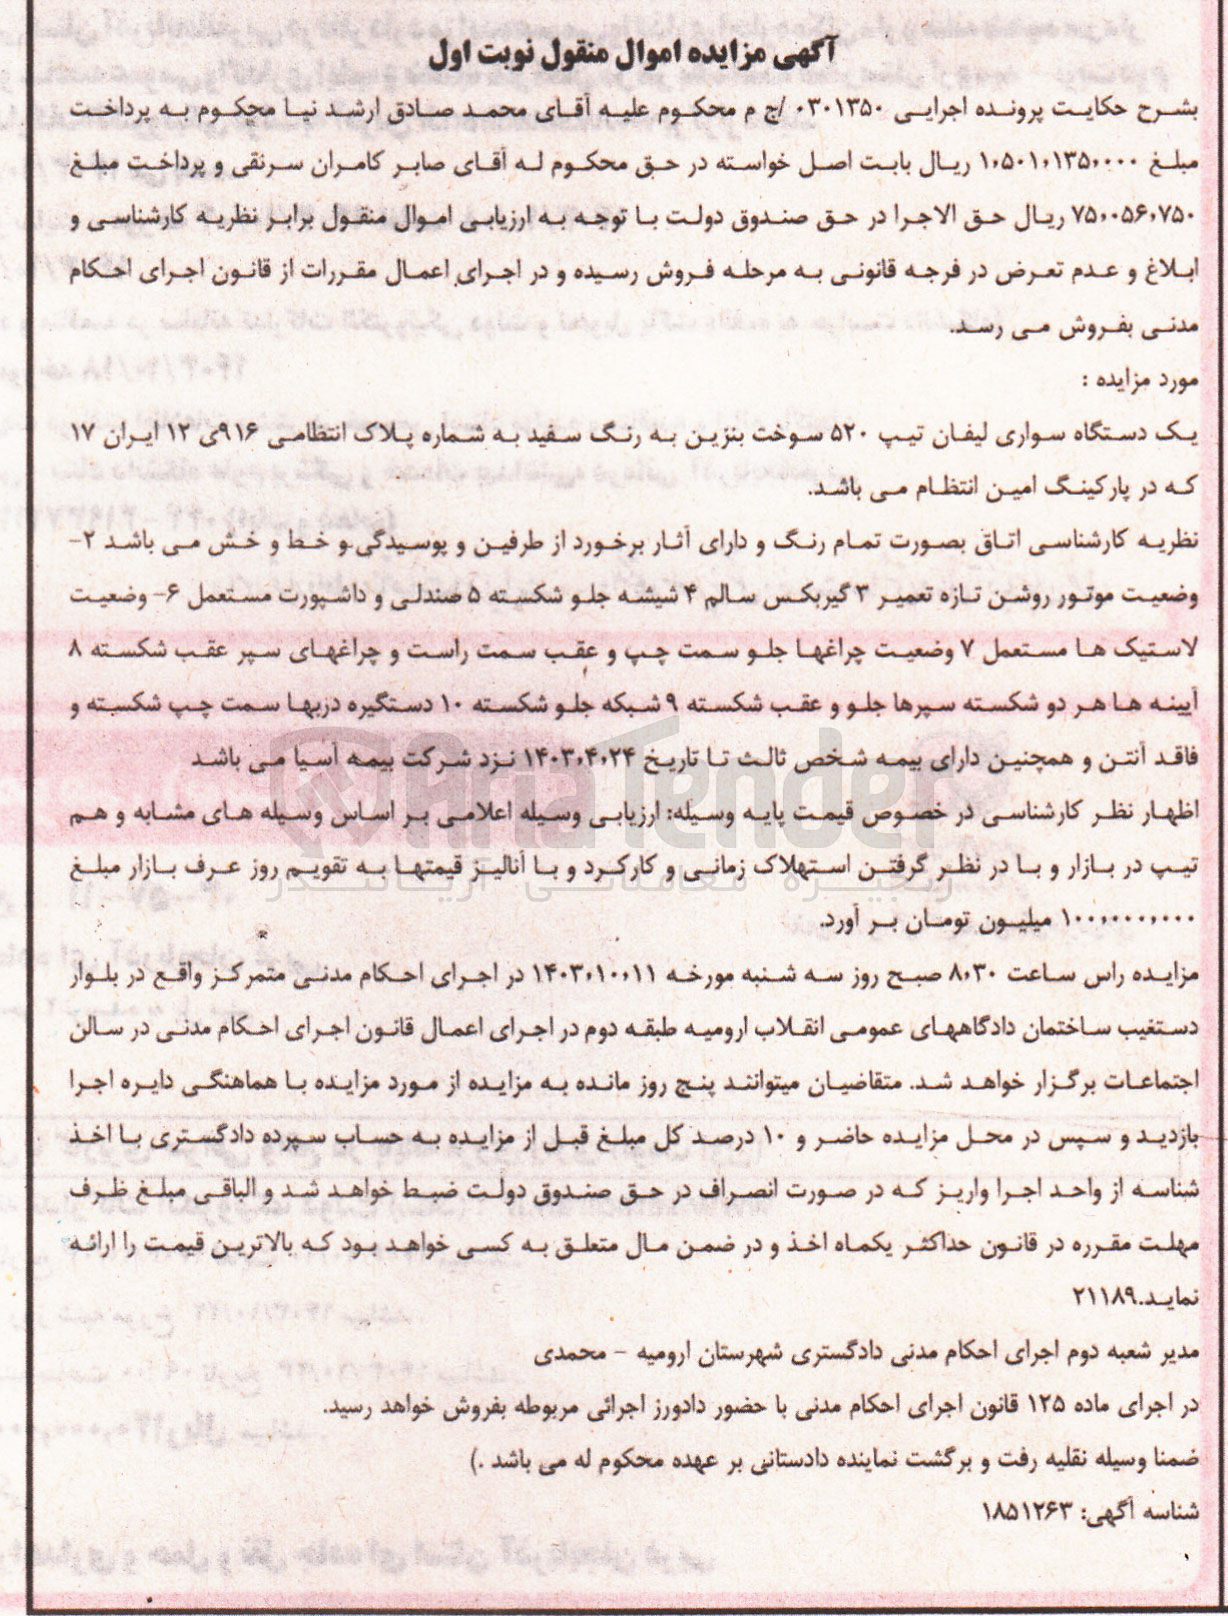 آگهی مزایده اموال منقول نوبت اول
بشرح حکایت پرونده اجرایی ۰۳۰۱۳۵۰ /ج م محکوم علیه آقای محمد صادق ارشد نیا محکوم به پرداخت
مبلغ ۱،۵۰۱،۱۳۵،۰۰۰ ریال بابت اصل خواسته در حق محکوم له آقای صابر کامران سرنقی و پرداخت مبلغ
۷۵،۰۵۶،۷۵۰ ریال حق الاجرا در حق صندوق دولت با توجه به ارزیابی اموال منقول برابر نظریه کارشناسی و
ابلاغ و عدم تعرض در فرجه قانونی به مرحله فروش رسیده و در اجرای اعمال مقررات از قانون اجرای احکام
مدنی بفروش می رسد.
مورد مزایده :
یک دستگاه سواری لیفان تیپ ۵۲۰ سوخت بنزین به رنگ سفید به شماره پلاک انتظامی ۹۱۶ی ۱۲ ایران ۱۷
که در پارکینگ امین انتظام می باشد.
نظریه کارشناسی اتاق بصورت تمام رنگ و دارای آثار برخورد از طرفین و پوسیدگی و خط و خش می باشد ۲-
وضعیت موتور روشن تازه تعمیر ۳ گیربکس سالم ۴ شیشه جلو شکسته ۵ صندلی و داشپورت مستعمل ۶- وضعیت
لاستیک ها مستعمل ۷ وضعیت چراغها جلو سمت چپ و عقب سمت راست و چراغهای سپر عقب شکسته ۸
آیینه ها هر دو شکسته سپرها جلو و عقب شکسته ۹ شبکه جلو شکسته ۱۰ دستگیره دربها سمت چپ شکسته و
فاقد آنتن و همچنین دارای بیمه شخص ثالث تا تاریخ ۱۴۰۳،۴،۲۴ نزد شرکت بیمه آسیا می باشد
اظهار نظر کارشناسی در خصوص قیمت پایه وسیله: ارزیابی وسیله اعلامی بر اساس وسیله های مشابه و هم
تیپ در بازار و با در نظر گرفتن استهلاک زمانی و کارکرد و با آنالیز قیمتها به تقویم روز عرف بازار مبلغ
۱۰۰،۰۰۰،۰۰۰ میلیون تومان بر آورد.
مزایده راس ساعت ۸،۳۰ صبح روز سه شنبه مورخه ۱۴۰۳،۱۰،۱۱ در اجرای احکام مدنی متمرکز واقع در بلوار
دستغیب ساختمان دادگاههای عمومی انقلاب ارومیه طبقه دوم در اجرای اعمال قانون اجرای احکام مدنی در سالن
اجتماعات برگزار خواهد شد. متقاضیان میتوانند پنج روز مانده به مزایده از مورد مزایده با هماهنگی دایره اجرا
بازدید و سپس در محل مزایده حاضر و ۱۰ درصد کل مبلغ قبل از مزایده به حساب سپرده دادگستری با اخذ
شناسه از واحد اجرا واریز که در صورت انصراف در حق صندوق دولت ضبط خواهد شد و الباقی مبلغ ظرف
مهلت مقرره در قانون حداکثر یکماه اخذ و در ضمن مال متعلق به کسی خواهد بود که بالاترین قیمت را ارائه
نماید.۲۱۱۸۹
مدیر شعبه دوم اجرای احکام مدنی دادگستری شهرستان ارومیه - محمدی
در اجرای ماده ۱۲۵ قانون اجرای احکام مدنی با حضور دادورز اجرائی مربوطه بفروش خواهد رسید.
ضمنا وسیله نقلیه رفت و برگشت نماینده دادستانی بر عهده محکوم له می باشد .)
شناسه آگهی: ۱۸۵۱۲۶۳
AriaTender